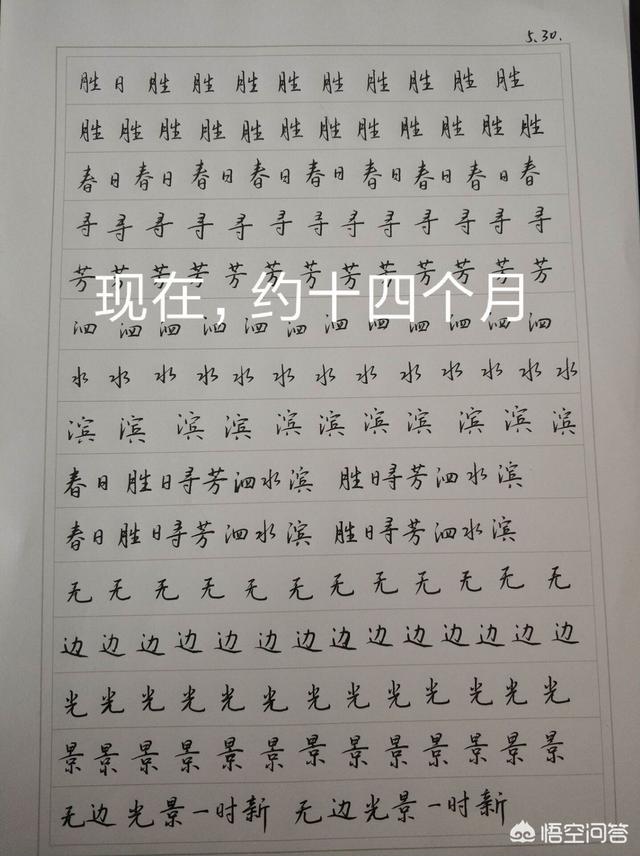 5.30.
胜 日 胜 胜 胜 胜 胜 胜 胜 胜 胜
胜 胜 胜 胜 胜 胜 胜 胜 胜 胜 胜 胜
春 日 春 日 春 日 春 日 春 日 春 日 春 日 春 日 春
寻 寻 寻 寻 寻 寻 寻 寻 寻 寻 寻 寻 寻
芳 芳 芳 芳 芳 芳 芳 芳 芳 芳 芳 芳 芳
现在，约十四个月
泗 泗 泗 泗 泗 泗 泗 泗 泗 泗 泗 泗
水 水 水 水 水 水 水 水 水 水 水 水 水
滨 滨 滨 滨 滨 滨 滨 滨 滨 滨 滨
春日胜日寻芳泗水滨 胜日寻芳泗水滨
春日胜日寻芳泗水滨 胜日寻芳泗水滨
无 无 无 无 无 无 无 无 无 无 无 无
边 边 边 边 边 边 边 边 边 边 边 边 边 边
光 光 光 光 光 光 光 光 光 光 光 光 光
景 景 景 景 景 景 景 景 景 景 景 景 景
无边光景一时新 无边光景一时新
悟空问答